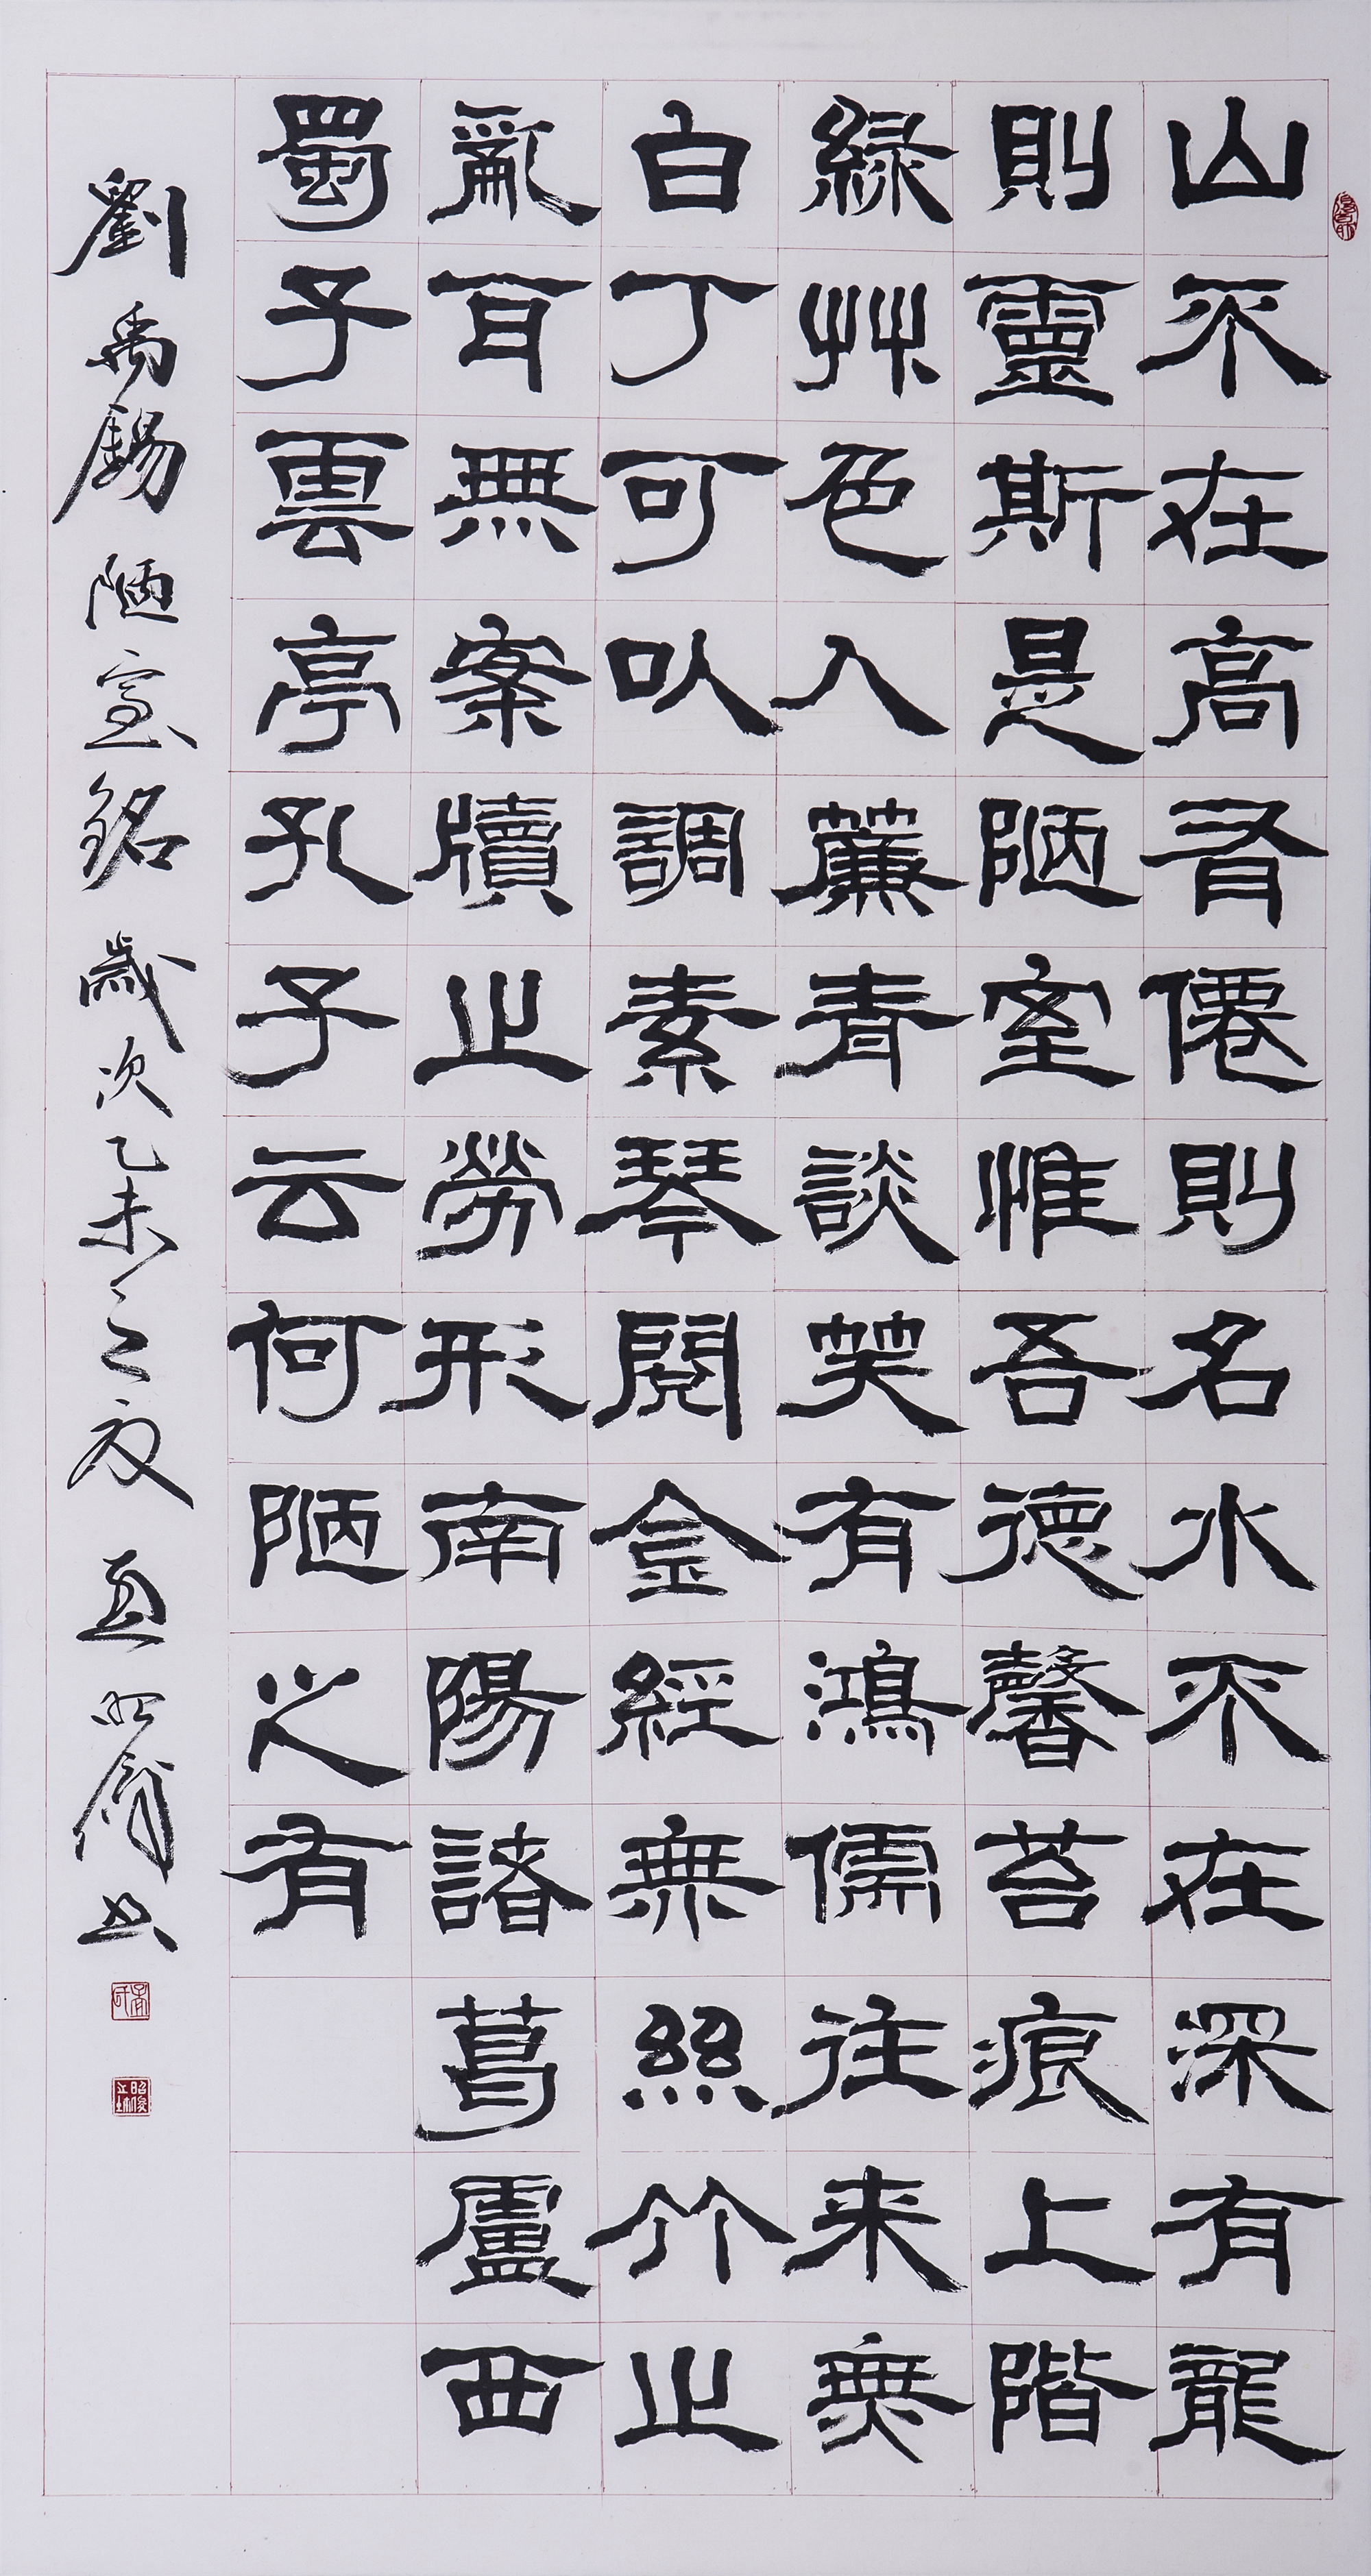 山不在高有僊則名水不在深有龍
則靈斯是陋室惟吾德馨苔痕上階
綠艸色入簾青談笑有鴻儒往来無
白丁可以調素琴閱金經無絲竹止
亂耳無案牘止勞形南陽諸葛廬西
蜀子雲亭孔子云何陋之有
劉禹錫陋室銘歲次乙未之夏